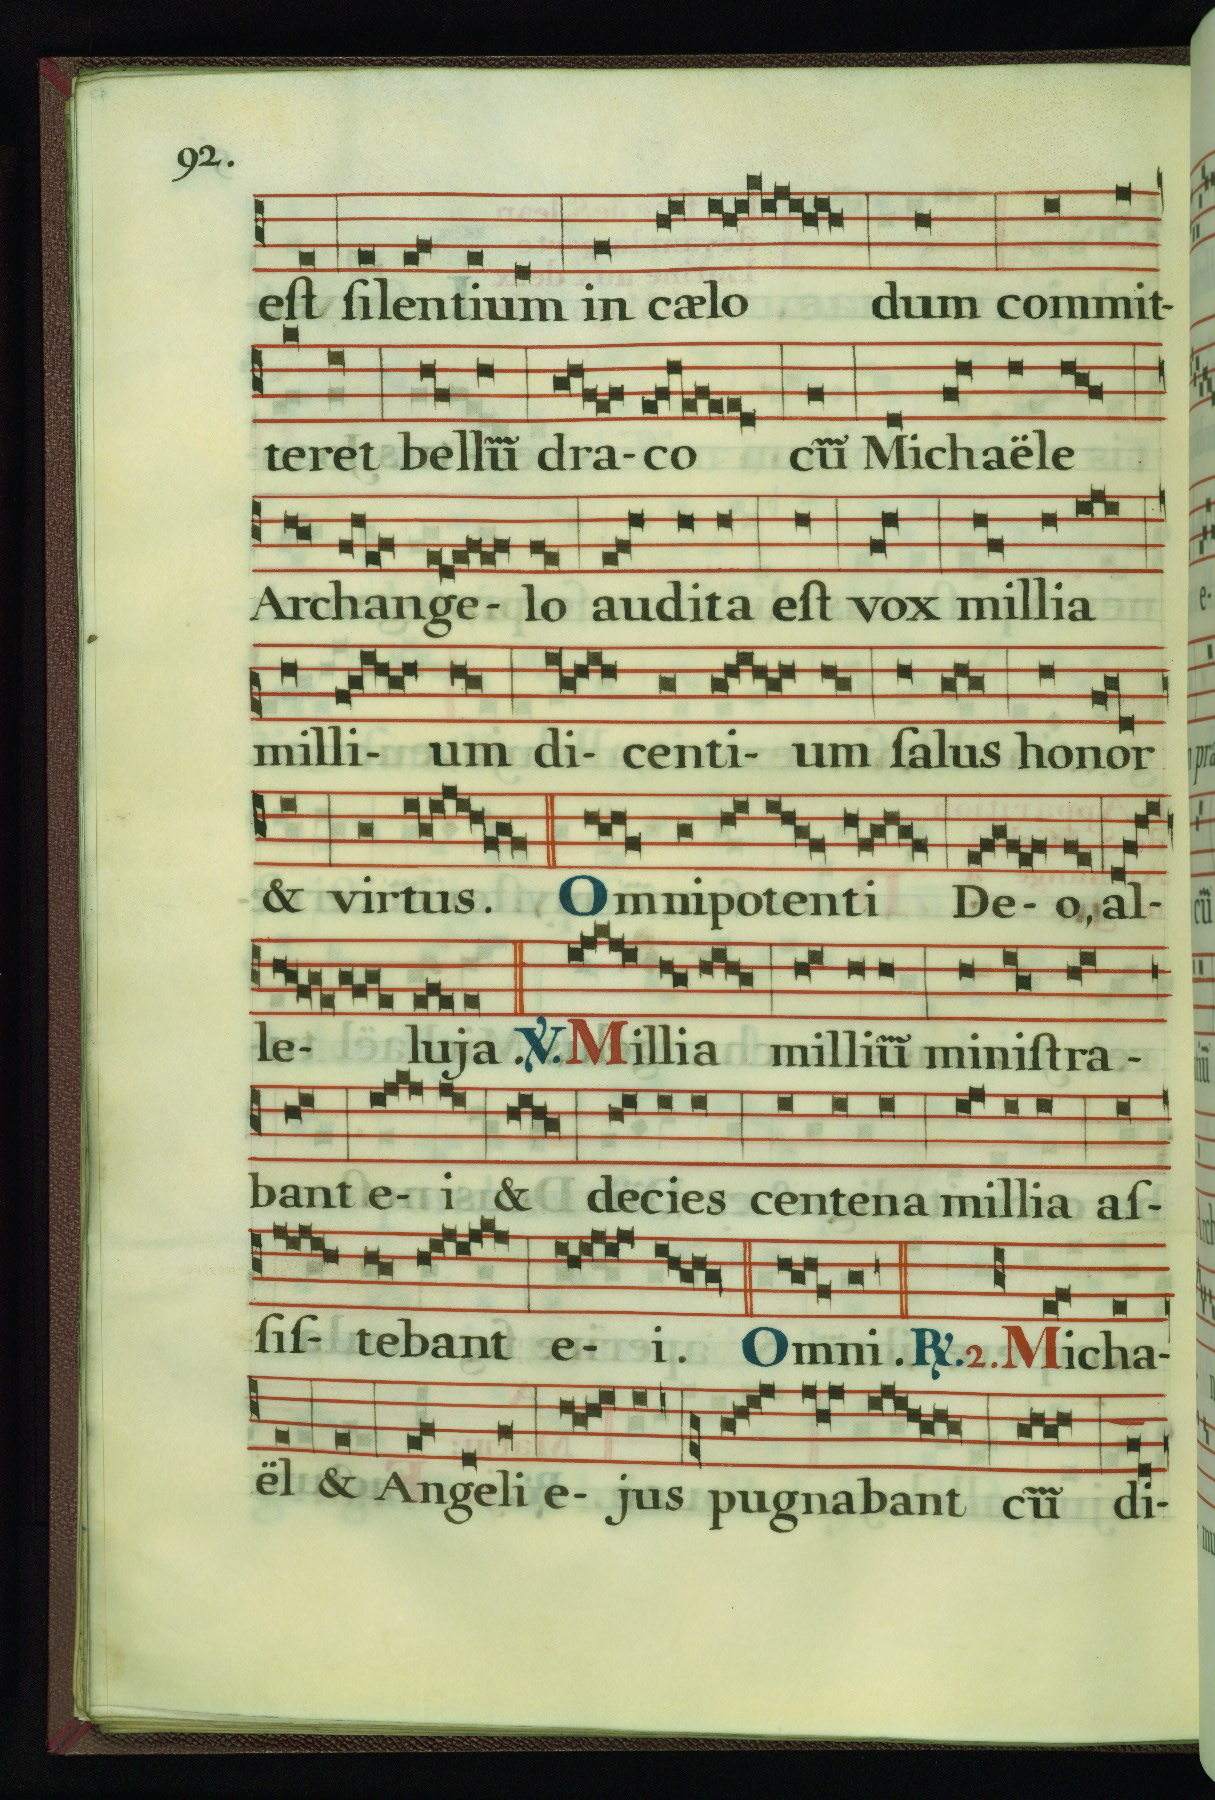 92.
eſt ſilentium in cælo dum commit-
teret bellũ dra-co cũ Michaële
Archange- lo audita eſt vox millia
milli- um di- centi- um ſalus honor
& virtus. Omnipotenti De- o, al-
le- luja . ℣. Millia milliũ miniſtra -
bant e- i & decies centena millia aſ-
ſiſ- tebant e- i. Omni . ℟. 2. Micha-
ël & Angeli e- jus pugnabant cũ di-